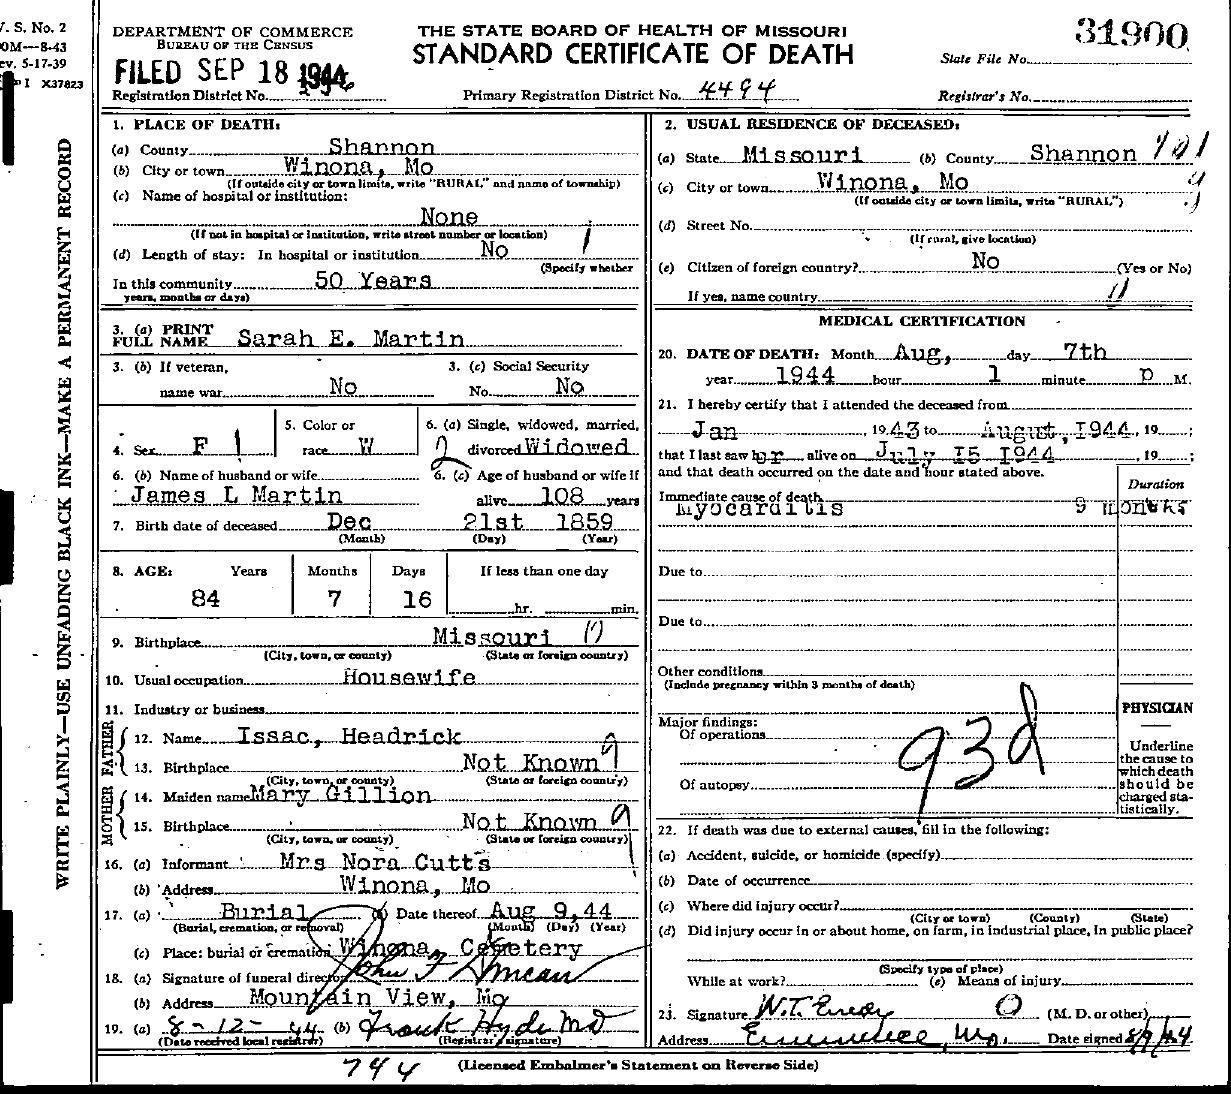 V. S. No. 2
OM—8-43
ev. 5-17-39
P I X37823
WRITE PLAINLY—USE UNFADING BLACK INK—MAKE A PERMANENT RECORD
DEPARTMENT OF COMMERCE
BUREAU OF THE CENSUS
THE STATE BOARD OF HEALTH OF MISSOURI
STANDARD CERTIFICATE OF DEATH
31900
State File No.
FILED SEP 18 1944
Registration District No.
Primary Registration District No. 4494
Registrar's No.
1. PLACE OF DEATH:
(a) County Shannon
(b) City or town Winona, Mo
(If outside city or town limits, write "RURAL," and name of township)
(c) Name of hospital or institution:
None
(If not in hospital or institution, write street number or location)
(d) Length of stay: In hospital or institution No
(Specify whether
In this community 50 Years
years, months or days)
2. USUAL RESIDENCE OF DECEASED:
(a) State Missouri (b) County Shannon 101
(c) City or town Winona, Mo
(If outside city or town limits, write "RURAL")
(d) Street No.
(If rural, give location)
(e) Citizen of foreign country? No (Yes or No)
If yes, name country
3. (a) PRINT FULL NAME Sarah E. Martin
3. (b) If veteran, name war No
3. (c) Social Security No. No
4. Sex F
5. Color or race W
6. (a) Single, widowed, married, divorced Widowed
6. (b) Name of husband or wife James L Martin
6. (c) Age of husband or wife if alive 108 years
7. Birth date of deceased Dec 21st 1859
(Month) (Day) (Year)
8. AGE: Years Months Days If less than one day
84 7 16 hr. min.
9. Birthplace Missouri
(City, town, or county) (State or foreign country)
10. Usual occupation Housewife
11. Industry or business
FATHER
12. Name Issac, Headrick
13. Birthplace Not Known 9
(City, town, or county) (State or foreign country)
MOTHER
14. Maiden name Mary Gillion
15. Birthplace Not Known 9
(City, town, or county) (State or foreign country)
16. (a) Informant Mrs Nora Cutts
(b) Address Winona, Mo
17. (a) Burial (b) Date thereof Aug 9, 44
(Burial, cremation, or removal) (Month) (Day) (Year)
(c) Place: burial or cremation Winona, Cemetery
18. (a) Signature of funeral director John F Duncan
(b) Address Mountain View, Mo
19. (a) 8-12-44 (b) Frank Hyde MD
(Date received local registrar) (Registrar's signature)
MEDICAL CERTIFICATION
20. DATE OF DEATH: Month Aug, day 7th
year 1944 hour 1 minute p M.
21. I hereby certify that I attended the deceased from
Jan, 1943 to August, 1944, 19 ;
that I last saw her alive on July 15 1944, 19 ;
and that death occurred on the date and hour stated above.
Duration
Immediate cause of death
Myocarditis 9 months
Due to
Due to
Other conditions
(Include pregnancy within 3 months of death)
Major findings:
Of operations
93d
Of autopsy
PHYSICIAN
Underline the cause to which death should be charged statistically.
22. If death was due to external causes, fill in the following:
(a) Accident, suicide, or homicide (specify)
(b) Date of occurrence
(c) Where did injury occur?
(City or town) (County) (State)
(d) Did injury occur in or about home, on farm, in industrial place, in public place?
(Specify type of place)
While at work? (e) Means of injury
23. Signature W.T. Eudy (M. D. or other)
Address Eminence, Mo. Date signed 8/9/44
744
(Licensed Embalmer's Statement on Reverse Side)